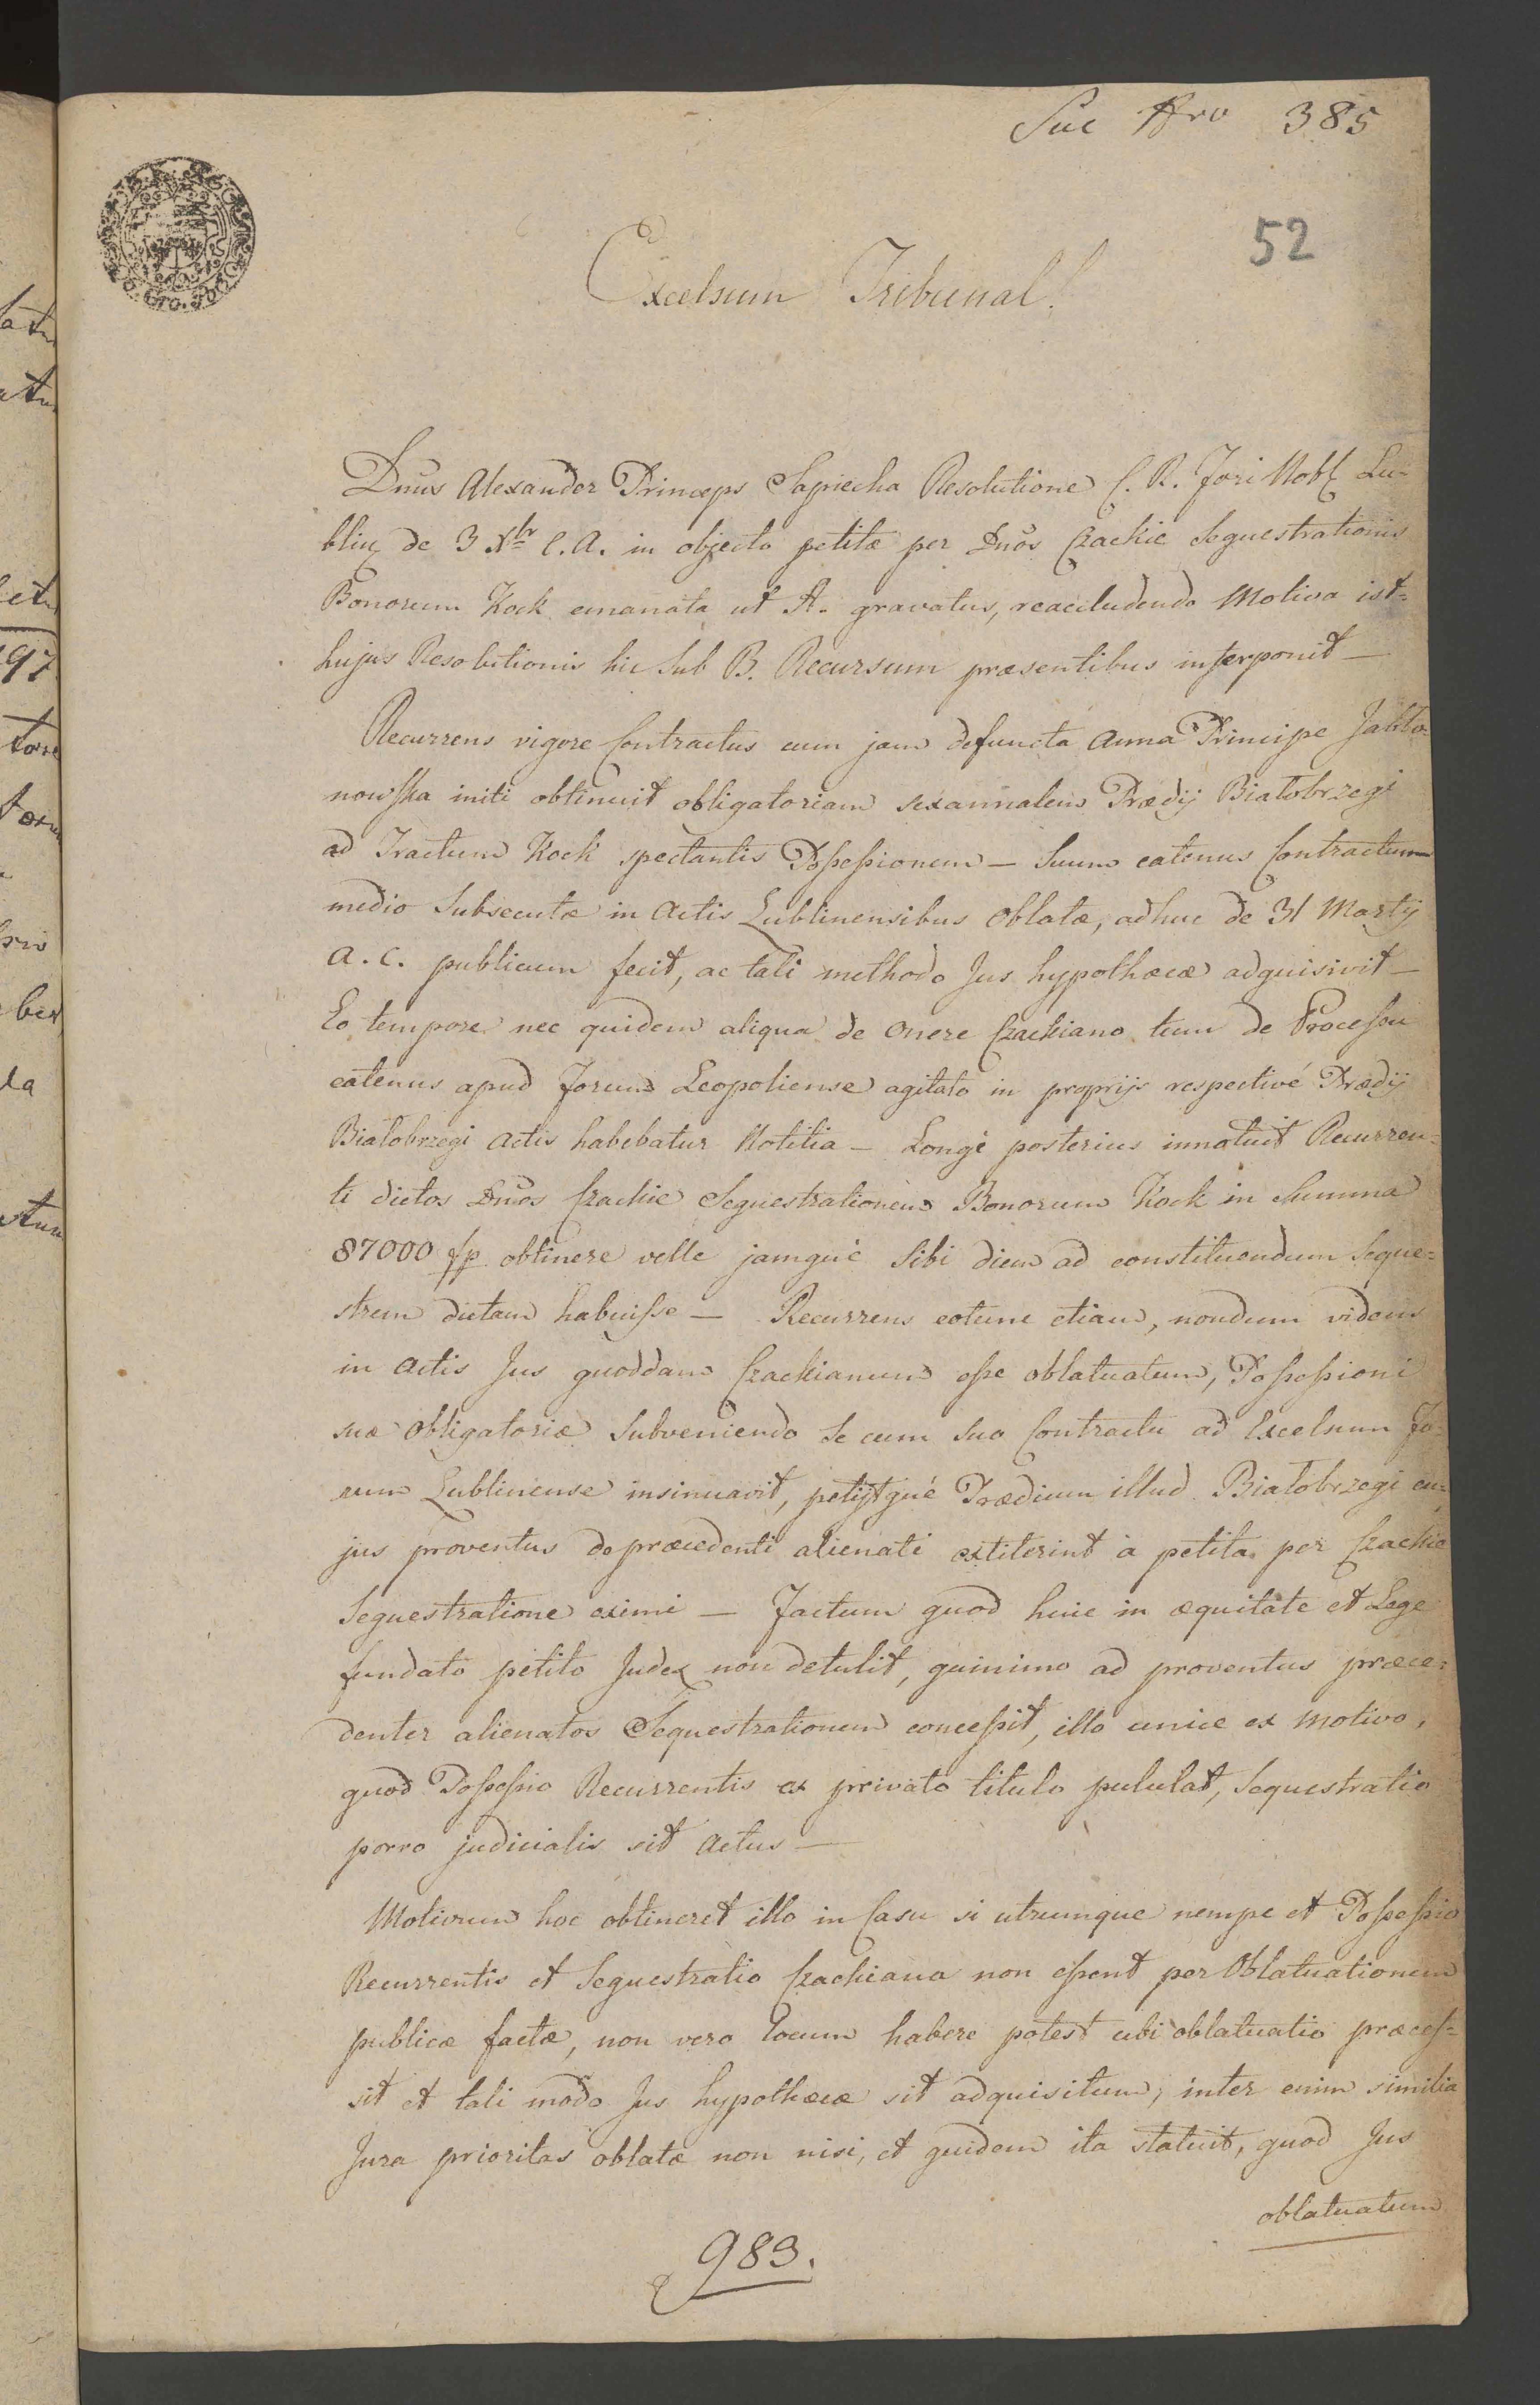 Suc Nro 385
52
Excelsum Tribunal!
Dnus Alexander Princeps Sapiecha Resolutione C. R. Fori Nobl Lu-
blin de 3 Xbr C. A. in objecto petitæ per Dnos Czackie Sequestrationis
Bonorum Kock emanata ut A. gravatus, reaccludendo Motiva ist-
hujus Resolutionis hic sub B. Recursum præsentibus interponit —
Recurrens vigore Contractus cum jam defuncta Anna Principe Jabło-
nowska initi obtinuit obligatoriam sexannalem Prædij Białobrzegi
ad Tractum Kock spectantis Possessionem — Suum eatenus Contractum
medio Subsecutæ in Actis Lublinensibus Oblatæ, adhuc de 31 Martij
A. C. publicum fecit, ac tali methodo Jus hypothecæ adquisivit —
Eo tempore nec quidem aliqua de Onere Czackiano tum de Processu
eatenus apud Forum Leopoliense agitato in proprijs respectivé Prædij
Białobrzegi Actis habebatur Notitia — Longé posterius innotuit Recurren-
ti dictos Dnos Czackie Sequestrationem Bonorum Kock in Summa
87000 fp obtinere velle jamqué sibi diem ad constituendum Seque-
strem dictam habuisse — Recurrens eotunc etiam, nondum videns
in Actis Jus quoddam Czackianum esse oblatuatum, Possessioni
suæ Obligatoriæ Subveniendo se cum suo Contractu ad Excelsum Fo-
rum Lublinense insinuavit, petijtqué Prædium illud Białobrzegi cu-
jus proventus de præcedenti alienati extiterint a petita per Czackie
Sequestratione eximi — Factum quod huic in æquitate et Lege
fundato petito Judex non detulit, quinimo ad proventus præce-
denter alienatos Sequestrationem concessit, illo unice ex Motivo,
quod Possessio Recurrentis ex privato titulo pululat, Sequestratio
porro judicialis sit Actus —
Motivum hoc obtineret illo in Casu si utrumque nempe et Possessio
Recurrentis et Sequestratio Czackiana non essent per Oblatuationem
publicæ factæ, non vero locum habere potest ubi oblatuatio præces-
sit et tali modo Jus hypothecæ sit adquisitum, inter enim similia
Jura prioritas oblatæ non nisi, et quidem ita statuit, quod Jus
oblatuatum
983.